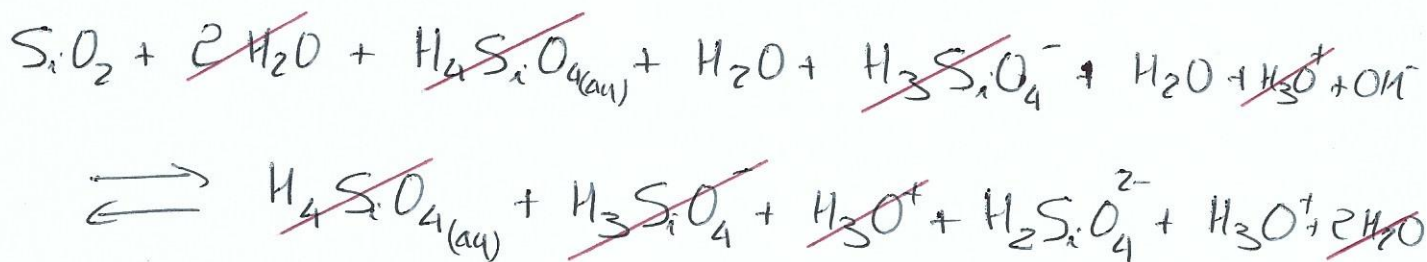 SiO₂ + 2H₂O + H₄SiO₄(aq) + H₂O + H₃SiO₄⁻ + H₂O + H₃O⁺ + OH⁻
⇌ H₄SiO₄(aq) + H₃SiO₄⁻ + H₃O⁺ + H₂SiO₄²⁻ + H₃O⁺ + 2H₂O